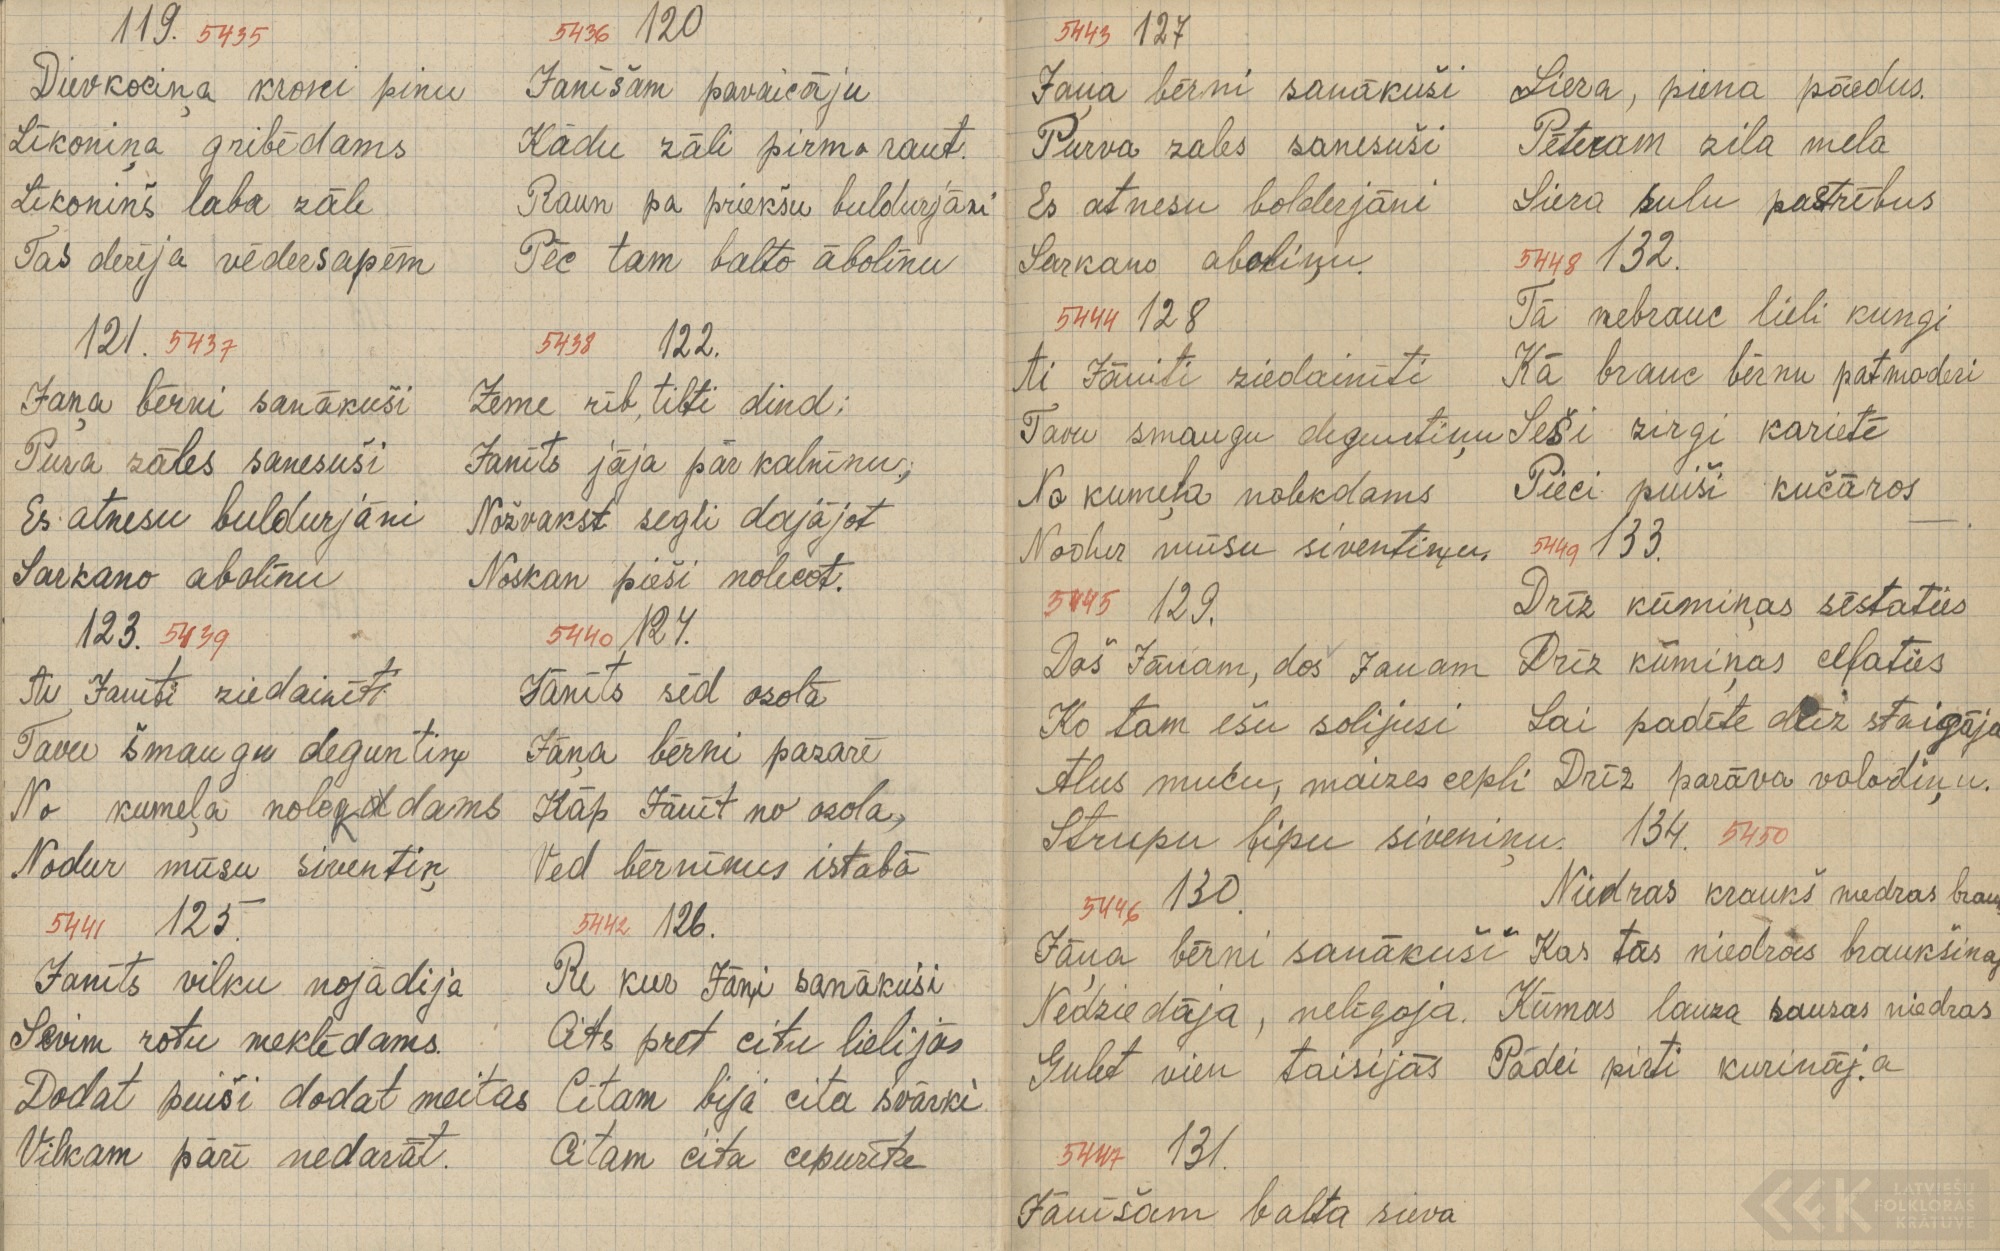 119. 5435
Dievkociņa kroni pinu
Līkoniņa gribēdams
Līkoniņš laba zāle
Tas derēja vēdersapēm
5436 120
Janīšam pavaicāju
Kādu zāli pirmo raut.
Raun pa priekšu buldurjāni
Pēc tam balto āboliņu
121. 5437
Jaņa bērni sanākuši
Pura zāles sanesuši
Es atnesu buldurjāni
Sarkano aboliņu
5438 122.
Zeme rīb, tilti dind;
Janīts jāja pār kalniņu;
Nožvakst segli dajājot
Noskan pieši nolecot.
123. 5439
Ai Janīti ziedainīti
Tavu šmaugu deguntiņ
No kumeļa nolekdams
Nodur mūsu siventiņ
5440 124.
Jānīts sēd osolā
Jāņa bērni pazarē
Kāp Jānīt no osola,
Ved bērniņus istabā
5441 125.
Janīts vilku nojādija
Sevim rotu meklēdams.
Dodat puiši dodat meitas
Vilkam pāri nedarāt.
5442 126.
Re kur Jāņi sanākuši
Cits pret citu lielijās
Citam bija cita svārki
Citam cita cepurīte
5443 127
Jaņa bērni sanākuši
Purva zales sanesuši
Es atnesu bolderjāni
Sarkano aboliņu.
5444 128
Ai Jānīti ziedainīti
Tavu smaugu deguntiņu
No kumeļa nolekdams
Nodur mūsu siventiņu.
5445 129.
Doš Jānam, dos Janam
Ko tam ešu solijusi
Alus mucu, maizes cepli
Strupu lipu siveniņu.
5446 130.
Jāņa bērni sanākuši
Nedziedāja, neligoja.
Gulet vien taisijās
5447 131.
Jānīšam balta sieva
Siera, piena pāedus.
Pēteram zila mela
Siera sulu pastrēbus
5448 132.
Tā nebrauc lieli kungi
Kā brauc bērnu patmoderi
Seši zirgi karietē
Pieci puiši kučāros
5449 133.
Drīz kūmiņas sēstatiēs
Drīz kūmiņas celfatiēs
Lai padīte drīz staigāja
Drīz parāva volodiņu.
134. 5450
Niedras kraukš niedras
Kas tās niedras
Kūmas lauza sausas niedras
Pādei pirti kurināja
LATVIEŠU
FOLKLORAS
KRĀTUVE